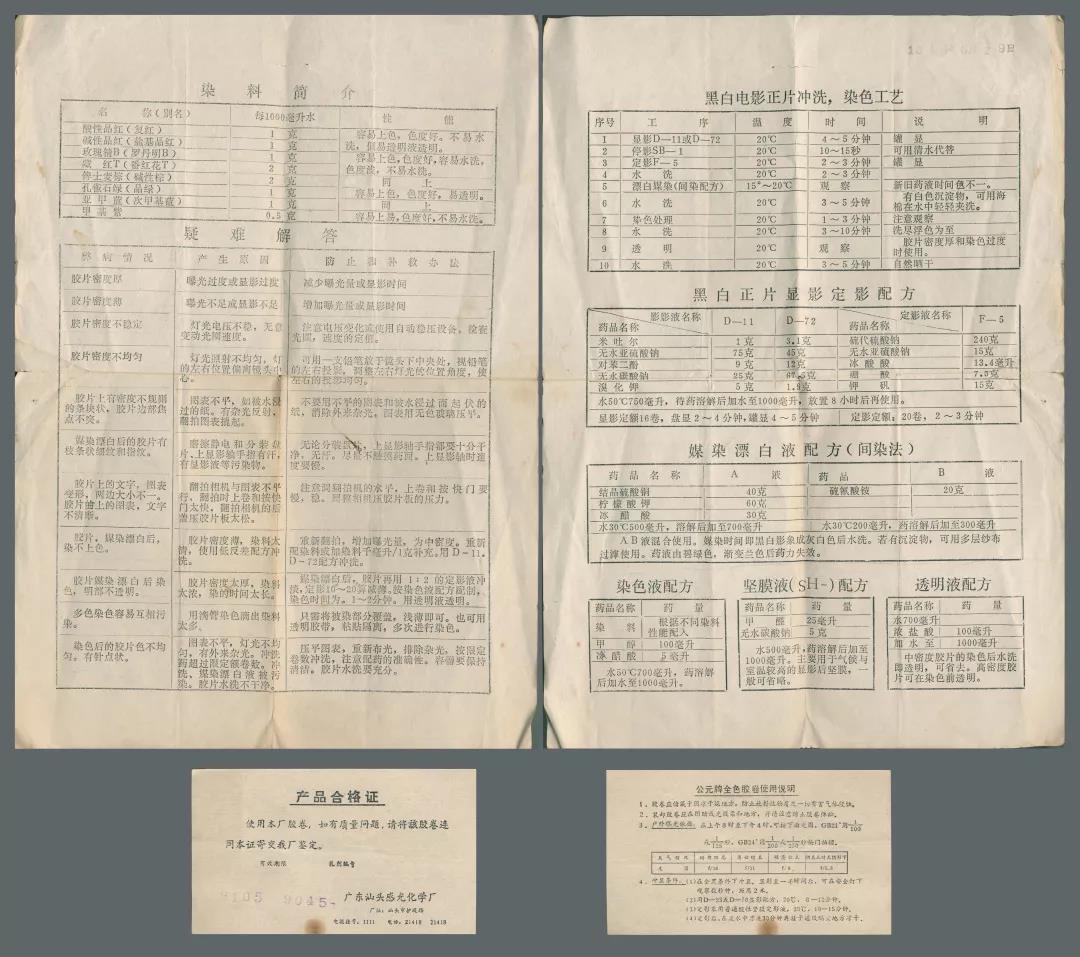 染料简介
名 称(别名) 每1000毫升水 性 能
酸性品红(复红) 1 克 容易上色,色度好。不易水
碱性品红(盐基品红) 1 克 洗,但易透明液透明。
玫瑰精B(罗丹明B) 1 克 容易上色,色度好,容易水洗,
藏 红T(番红花T) 2 克 色度淡,不易水洗。
俾士麦棕(碱性棕) 2 克 同 上
孔雀石绿(品绿) 1 克 容易上色,色度好,易透明。
亚 甲 蓝(次甲基蓝) 1 克 同 上
甲 基 紫 0.5 克 容易上易,色度好,不易水洗。
疑难解答
弊病情况 产生原因 防止和补救办法
胶片密度厚 曝光过度或显影过度 减少曝光量或显影时间
胶片密度薄 曝光不足或显影不足 增加曝光量或显影时间
胶片密度不稳定 灯光电压不稳,无意 注意电压变化或使用自动稳压设备,检查
变动光圈速度。 光圈,速度的定值。
胶片密度不均匀 灯光照射不均匀,灯 可用一支铅笔放于镜头下中央处,视铅笔
的左右位置偏离镜头中 的左右投影,调整左右灯光的位置角度,使
心。 左右的投影均匀。
胶片上有密度不规则 图表不平,如被水浸 不要用不平的图表和被水浸过而起伏的
的条块状,胶片边部焦 过的纸。有杂光反射, 纸,消除外来杂光,图表用无色玻璃压平。
点不突。 翻拍图表撬起。
媒染漂白后的胶片有 磨擦静电和分装胶 无论分装胶片,上显影轴手指都要十分干
枝条状细纹和指纹。 片、上显影轴手指有汗, 净,无汗。尽量不触摸药面。上显影轴时速
有显影液等污染物。 度要慢。
胶片上的文字,图表 翻拍相机与图表不平 注意调翻拍机的水平,上卷和按快门要
变形,两边大小不一。 行,翻拍时上卷和按快 慢,稳。调整相机压胶片板的压力。
胶片的上的图表,文字 门太快,翻拍相机的后
不清晰。 盖压胶片板太松。
胶片,媒染漂白后, 胶片密度薄,染料太 重新翻拍,增加曝光量,为中密度。重新
染不上色。 清,使用低反差配方冲 配染料或加染料于毫升/1克补充。用D-11,
洗。 D-72配方冲洗。
胶片媒染漂白后染 胶片密度太厚,染料 媒染漂白后,胶片再用1:2的定影液冲
色,明部不透明。 太浓,染的时间太长。 淡,定影10~20算减薄。按染色液配方配制,
染色时间为,1~2分钟。用透明液透明。
多色染色容易互相污 用滴管染色滴出染料 只需将被染部分覆盖,浅薄即可。也可用
染。 太多。 透明胶带,粘贴隔离,多次进行染色。
染色后的胶片色不均 图表不平,灯光不均 压平图表,重新布光,排除杂光。按限定
匀。有针点状。 匀,有外来杂光。冲洗 卷数冲洗,注意配药的准确性。容器要保持
药超过限定额卷数。冲 清洁。胶片水洗要充分。
洗、媒染漂白液被污
染。胶片水洗不干净。
黑白电影正片冲洗,染色工艺
序号 工 序 温 度 时 间 说 明
1 显影D—11或D—72 20℃ 4~5分钟 罐 显
2 停影SB—1 20℃ 10~15秒 可用清水代替
3 定影F—5 20℃ 2~3分钟 罐 显
4 水 洗 20℃ 2~3分钟
5 漂白媒染(间染配方) 15°~20℃ 观 察 新旧药液时间色不一。
6 水 洗 20℃ 3~5分钟 有白色沉淀物,可用海
棉在水中轻轻夹洗。
7 染色处理 20℃ 1~3分钟 注意观察
8 水 洗 20℃ 3~10分钟 洗尽浮色为至
9 透 明 20℃ 观 察 胶片密度厚和染色过度
时使用。
10 水 洗 20℃ 3~5分钟 自然晒干
黑白正片显影定影配方
影影液名称 药品名称 D—11 D—72 定影液名称 药品名称 F—5
米 吐 尔 1克 3.1克 硫代硫酸钠 240克
无水亚硫酸钠 75克 45克 无水亚硫酸钠 15克
对苯二酚 9克 12克 冰 醋 酸 13.4毫升
无水碳酸钠 25克 67.5克 硼 酸 7.5克
溴 化 钾 5克 1.9克 钾 矾 15克
水50℃750毫升,待药溶解后加水至1000毫升,放置8小时后再使用。
显影定额16卷,盘显2~4分钟,罐显4~5分钟 定影定额:20卷,2~3分钟
媒染漂白液配方(间染法)
药品名称 A 液 药 品 B 液
结晶硫酸铜 40克 硫氰酸铵 20克
柠檬酸钾 60克
冰 醋 酸 30克
水30℃500毫升,溶解后加至700毫升 水30℃200毫升,药溶解后加至300毫升
AB液混合使用。媒染时间即黑白影象成灰白色后水洗。若有沉淀物,可用多层纱布
过滹使用。药液由翠绿色,渐变兰色后药力失效。
染色液配方
药品名称 药 量
染 料 根据不同染料
性能配入
甲 醇 100毫升
冰醋酸 5毫升
水50℃700毫升,药溶解
后加水至1000毫升。
坚膜液(SH-)配方
药品名称 药 量
甲 醛 25毫升
无水碳酸钠 5克
水500毫升,药溶解后加至
1000毫升。主要用于气候与
室温较高的显影后坚膜,一
般可省略。
透明液配方
药品名称 药 量
水700毫升
浓 盐 酸 100毫升
加 水 至 1000毫升
中密度胶片的染色后水洗
即透明,可省去。高密度胶
片可在染色前透明。
产品合格证
使用本厂胶卷,如有质量问题,请将该胶卷连
同本证寄交我厂鉴定。
有效期限 乳剂编号
9105 9045-
广东汕头感光化学厂
厂址:汕头市护堤路
电报挂号:1111 电话:21418 21419
公元牌全色胶卷使用说明
1、胶卷应储藏于阴凉干燥地方,防止放射性物质及一切有害气体侵蚀。
2、装卸胶卷应在阴暗或光线柔和地方,并请注意防止胶卷弹松。
3、户外曝光依据:在上午8时至下午4时,可按下面光圈,GB21°用1/100
或1/125秒,GB24°用1/200或1/250秒快门拍摄。
4、冲显条件:(1)在全黑条件下冲显,显影至一半时间后,可在安全灯下
观察数秒钟,距离2米。
(3)定影采用普通酸性坚膜定影液,20℃,10—15分钟。